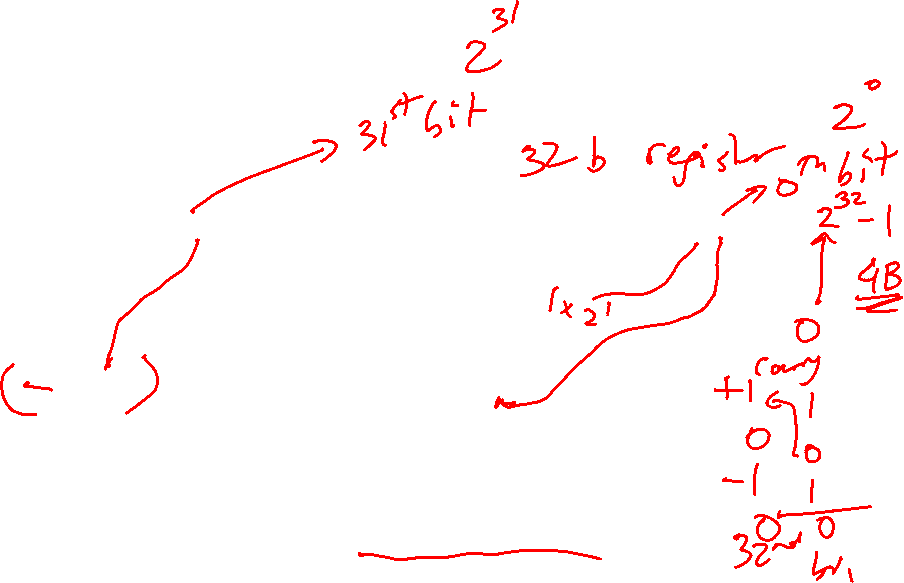 2^31
31st bit
2^0
32 b register
0th bit
2^32 - 1
4B
1 x 2^1
0
carry
+1
1
( - )
0
0
-1
1
0
0
32nd